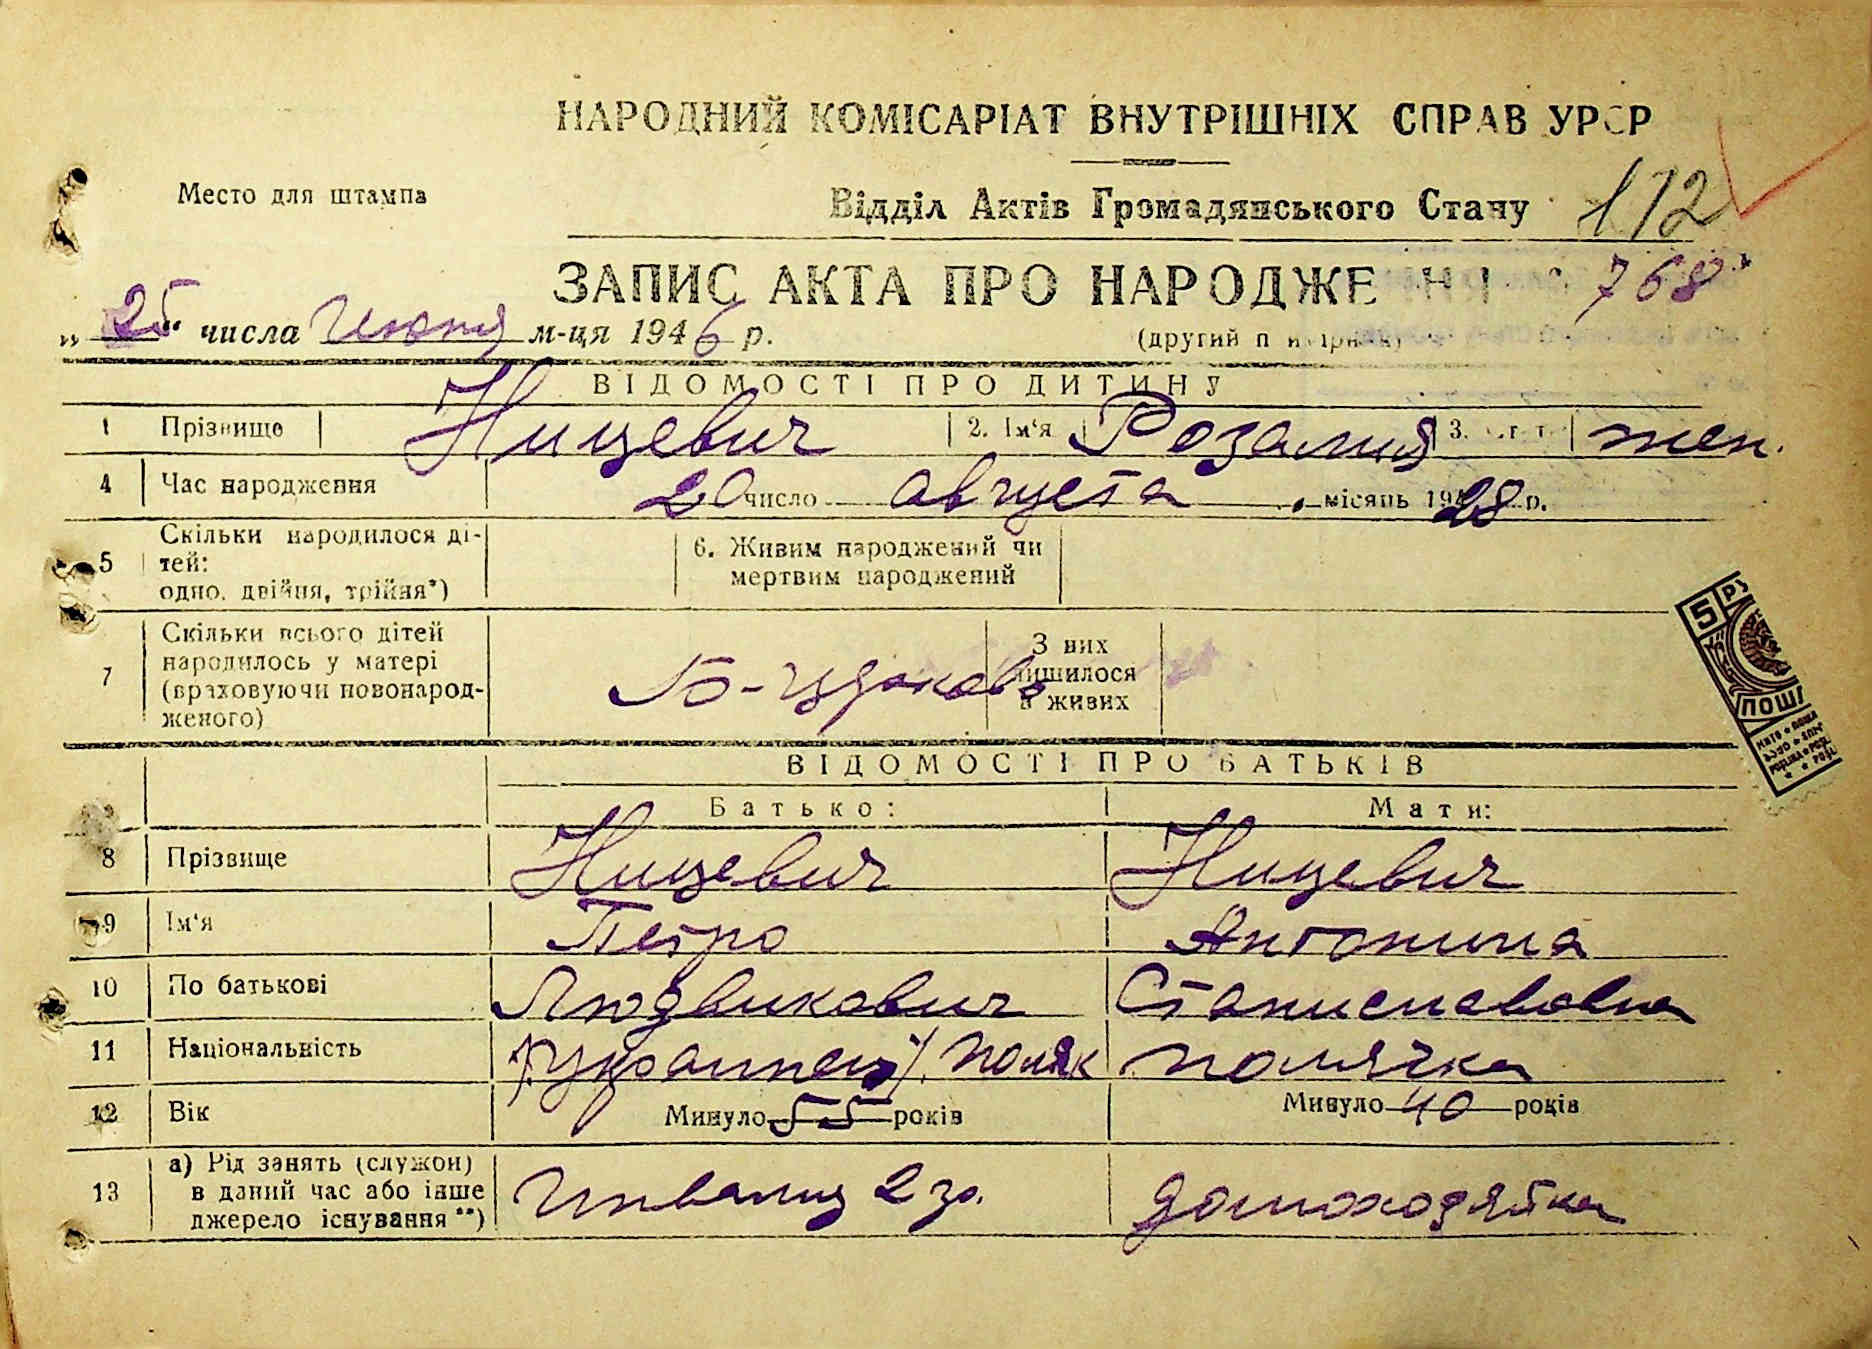 НАРОДНИЙ КОМІСАРІАТ ВНУТРІШНІХ СПРАВ УРСР
Место для штампа
Відділ Актів Громадянського Стану
112
ЗАПИС АКТА ПРО НАРОДЖЕННЯ 768
„25“ числа Июня м-ця 1946 р.
(другий примірник)
ВІДОМОСТІ ПРО ДИТИНУ
1 Прізвище Ницевич 2. Ім'я Розалия 3. жен.
4 Час народження 20 число августа місяць 1928 р.
5 Скільки народилося ді-
тей:
одно, двійня, трійня*)
6. Живим народжений чи
мертвим народжений
7 Скільки всього дітей
народилось у матері
(враховуючи новонарод-
женого)
З них
лишилося
в живих
ВІДОМОСТІ ПРО БАТЬКІВ
Батько: Мати:
8 Прізвище Ницевич Ницевич
9 Ім'я Петро Антонина
10 По батькові Людвикович Станиславовна
11 Національність поляк полячка
12 Вік Минуло 55 років Минуло 40 років
13 а) Рід занять (служби)
в даний час або інше
джерело існування **)
Инвалид 2 гр. домохозяйка
5 РУ
ПОШЛ